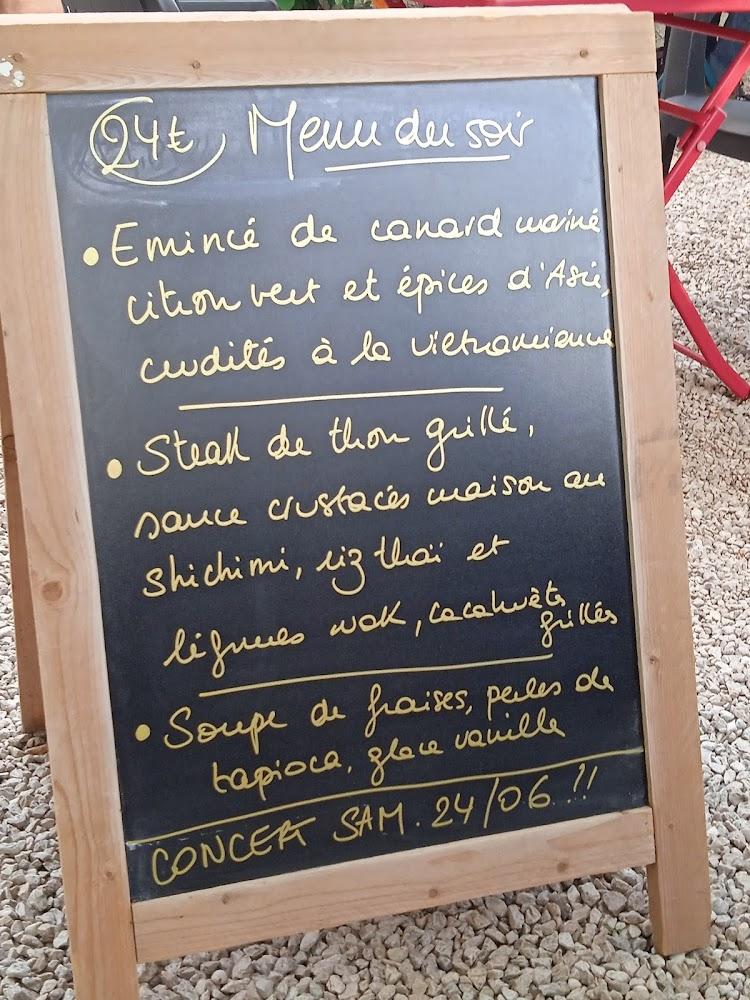 24€ Menu du soir
• Emincé de canard mariné
citron vert et épices d'Asie,
crudités à la vietnamienne
• Steak de thon grillé,
sauce crustacés maison au
shichimi, riz thaï et
légumes wok, cacahuèts
grillés
• Soupe de fraises, perles de
tapioca, glace vanille
CONCERT SAM. 24/06 !!